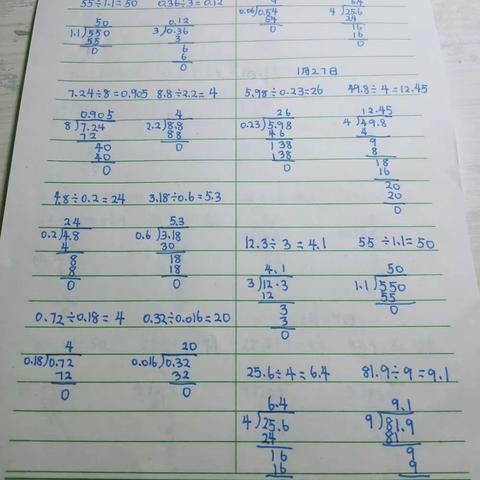 55÷1.1=50 0.36÷3=0.12
50
1.1)550
55
0
0.12
3)0.36
3
6
6
0
9
0.06)0.54
54
0
6.4
4)25.6
24
16
16
0
7.24÷8=0.905 8.8÷2.2=4
0.905
8)7.24
72
40
40
0
4
2.2)8.8
88
0
4.8÷0.2=24 3.18÷0.6=5.3
24
0.2)4.8
4
8
8
0
5.3
0.6)3.18
30
18
18
0
0.72÷0.18=4 0.32÷0.016=20
4
0.18)0.72
72
0
20
0.016)0.32
32
0
1月27日
5.98÷0.23=26 49.8÷4=12.45
26
0.23)5.98
46
138
138
0
12.45
4)49.8
4
9
8
18
16
20
20
0
12.3÷3=4.1 55÷1.1=50
4.1
3)12.3
12
3
3
0
50
1.1)550
55
0
25.6÷4=6.4 81.9÷9=9.1
6.4
4)25.6
24
16
16
9.1
9)81.9
81
9
9